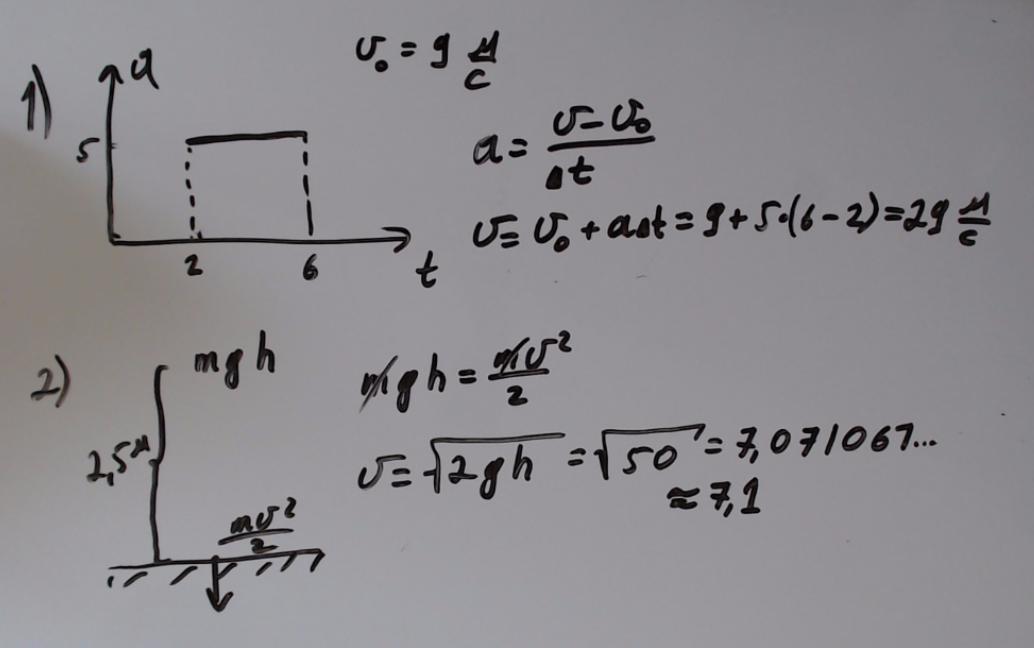 1)
a
5
2
6
t
υ₀ = 9 м/с
a = (υ - υ₀)/Δt
υ = υ₀ + aΔt = 9 + 5·(6 - 2) = 29 м/с
2)
mgh
2,5м
mυ²/2
mgh = mυ²/2
υ = √2gh = √50 = 7,071067...
≈ 7,1